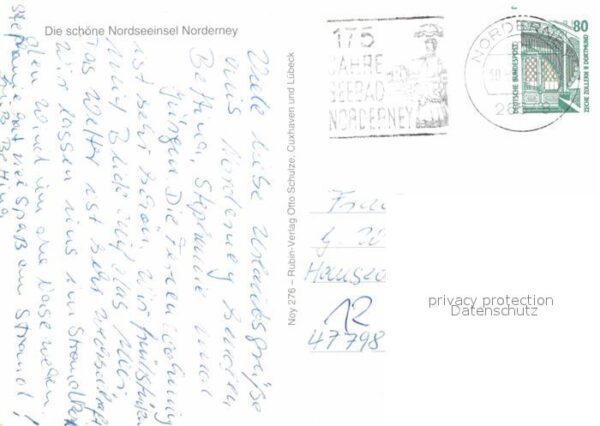 Die schöne Nordseeinsel Norderney
Viele liebe Urlaubsgrüße
aus Norderney senden
Bettina, Stephanie und
Jürgen. Die Ferienwohnung
ist sehr schön. Wir frühstücken
mit Blick auf das Meer.
Das Wetter ist sehr wechselhaft
wir lassen uns im Strandkorb
den Wind um die Nase wehen.
Stephanie hat viel Spaß am Strand!
Bettina
Noy 276 – Rubin-Verlag Otto Schulze, Cuxhaven und Lübeck
175
JAHRE
SEEBAD
NORDERNEY
NORDERNEY
80
DEUTSCHE BUNDESPOST
ZECHE ZOLLERN II DORTMUND
47798
privacy protection
Datenschutz